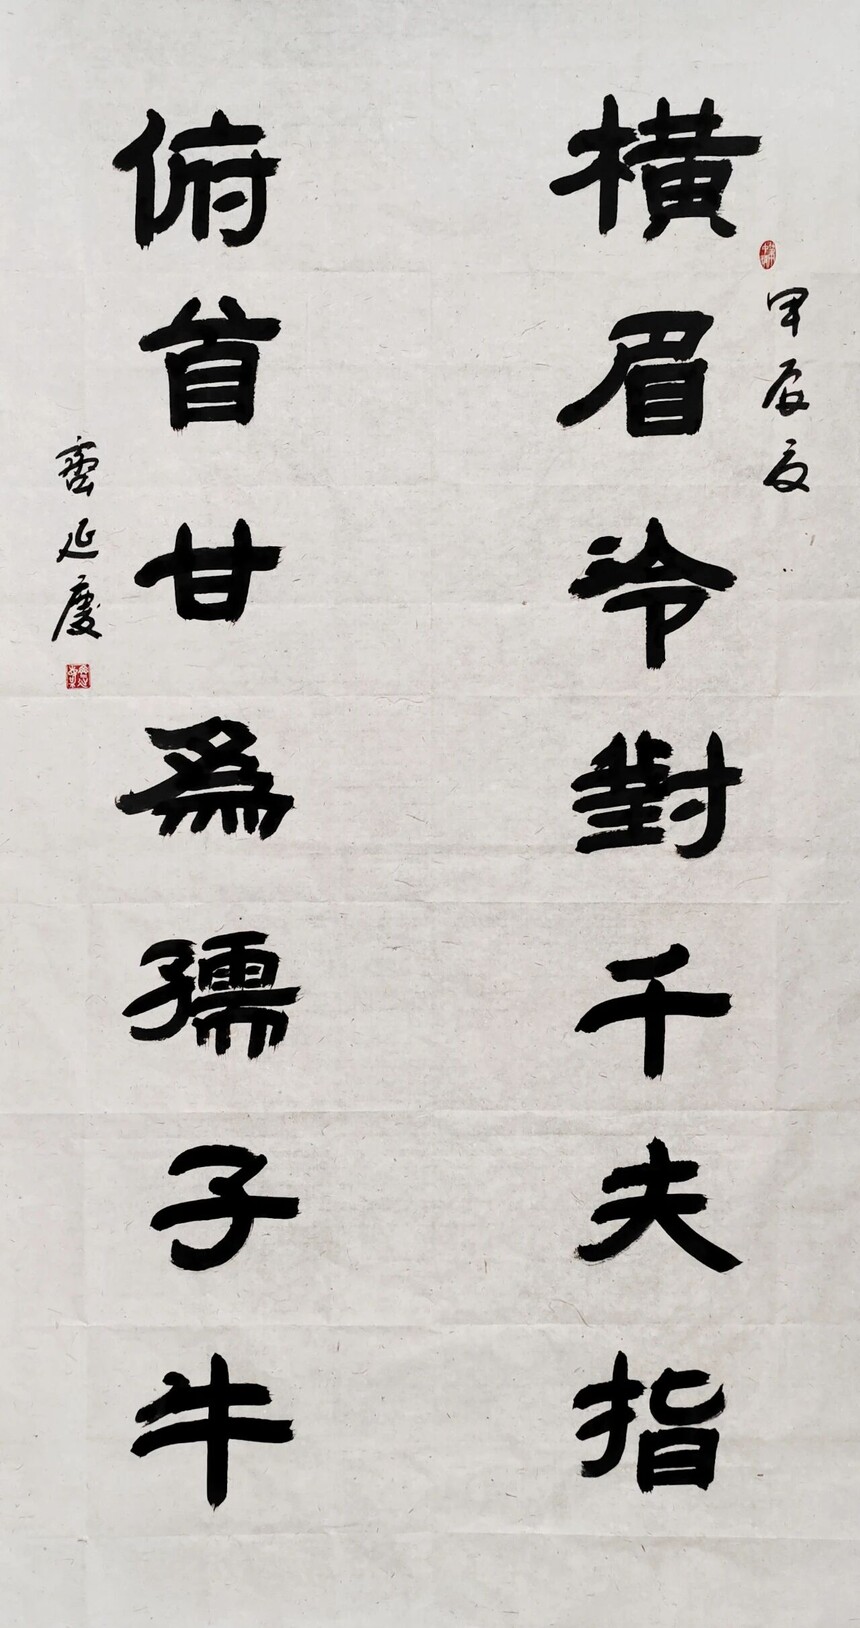 甲辰夏
橫眉冷對千夫指
俯首甘爲孺子牛
延慶